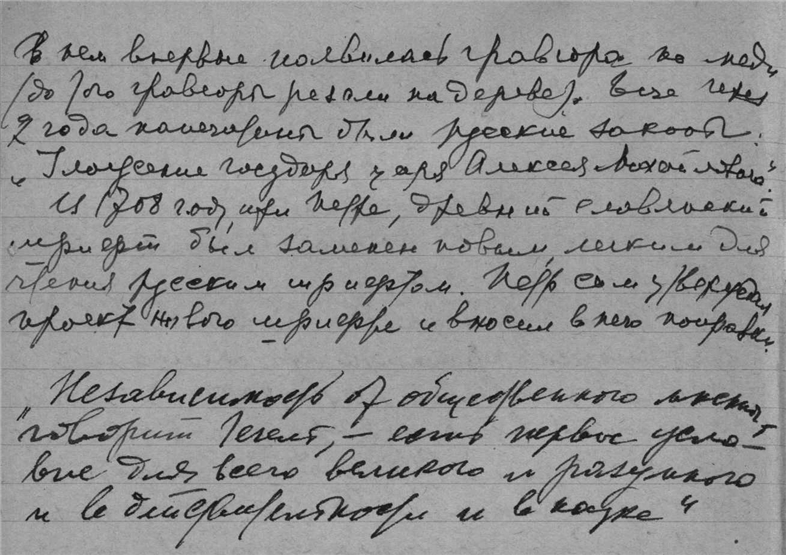 В нем впервые появилась гравюра на меди
(до этого гравюры резали на дереве). Еще через
2 года напечатаны были русские законы:
„Уложение государя царя Алексея Михайловича“.
В 1708 году, при Петре, древний славянский
шрифт был заменен новым, легким для
чтения русским шрифтом. Петр сам утверждал
проект нового шрифта и вносил в него поправки.
Независимость от общественного мнения,
"говорит Гегель, – есть первое усло-
вие для всего великого и разумного
и в действительности и в науке"